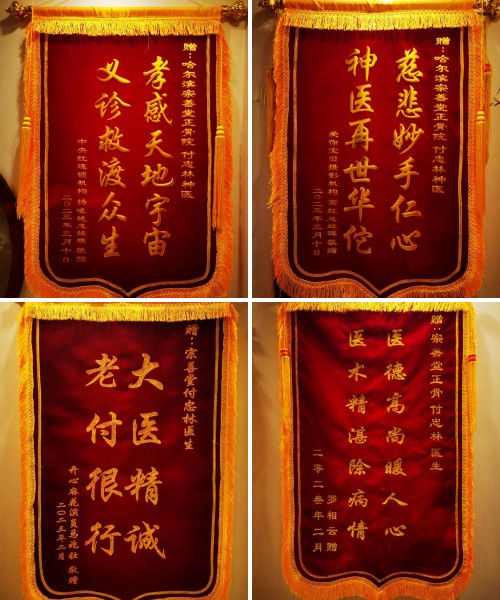 赠：哈尔滨宗善堂正骨院 付忠林神医
孝感天地宇宙
义诊救渡众生
中央红连锁机构 总经理敬赠
二〇二三年三月十日
赠：哈尔滨宗善堂正骨院 付忠林神医
慈悲妙手仁心
神医再世华佗
爱你宝贝摄影机构 高红总经理敬赠
二〇二三年三月十日
赠：宗善堂付忠林医生
大医精诚
老付很行
开心麻花演员马 壮 敬赠
二〇二三年二月
赠：宗善堂正骨 付忠林医生
医德高尚暖人心
医术精湛除病情
罗相云赠
二零二叁年二月